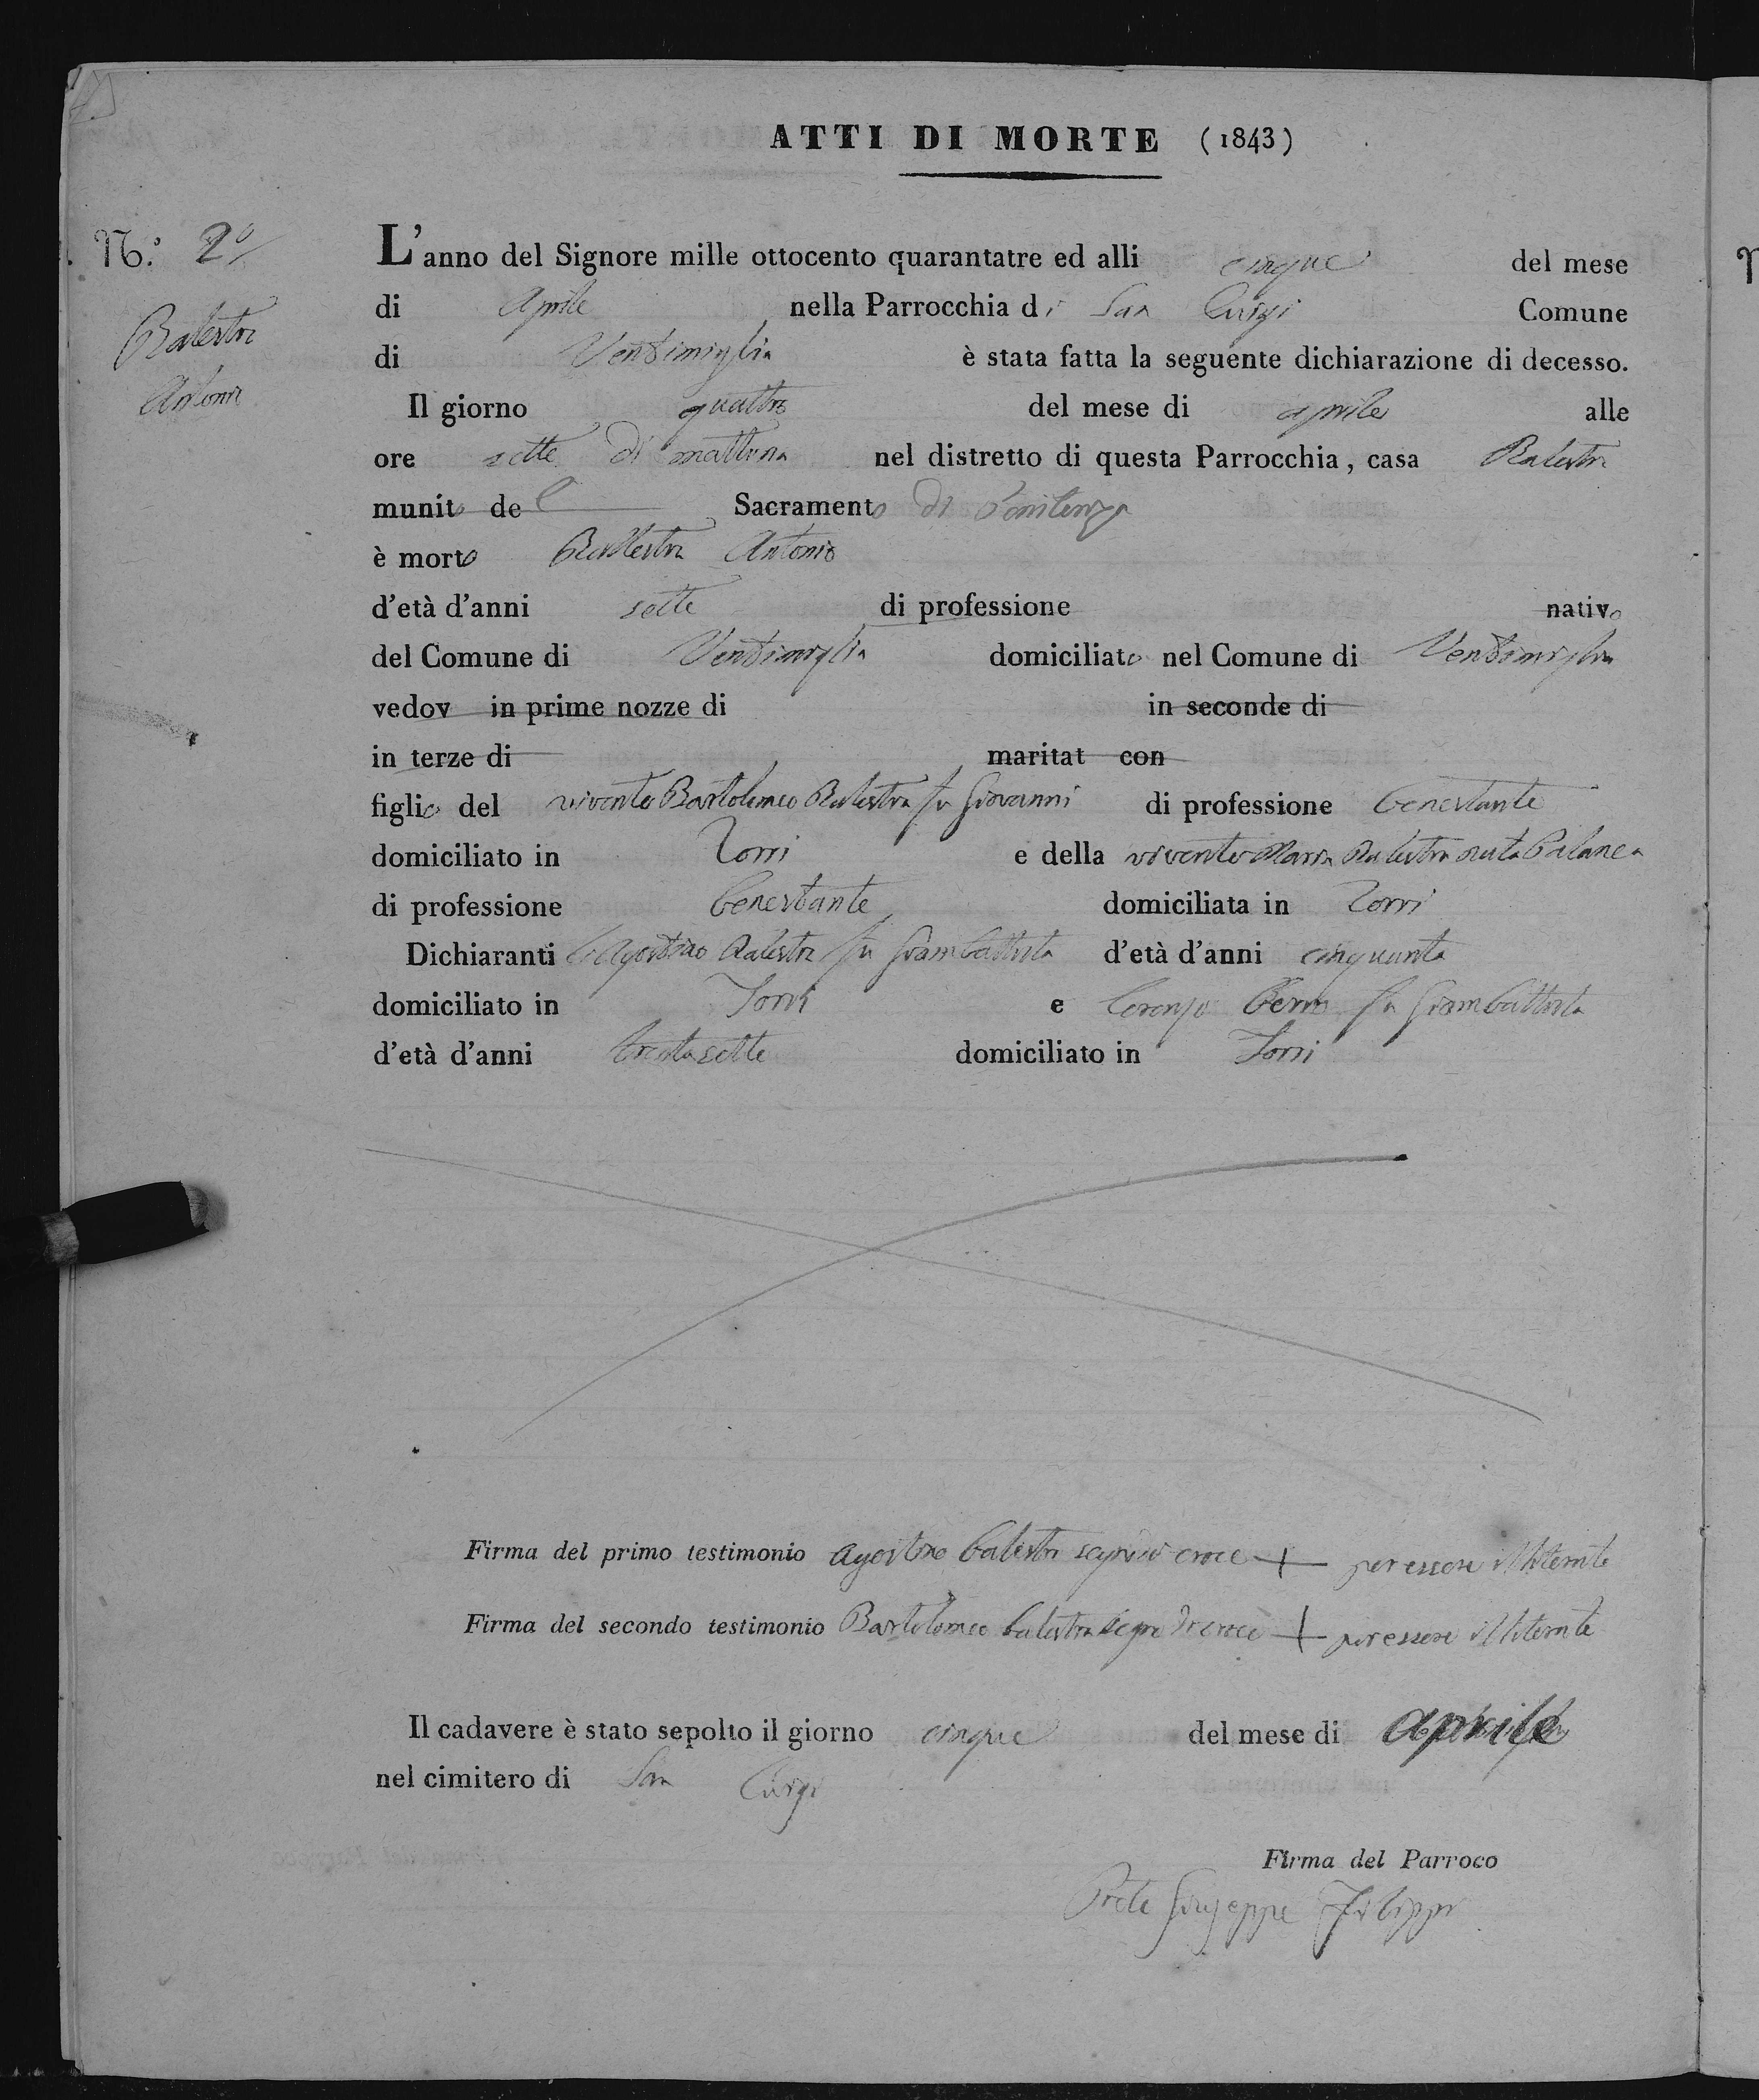 ATTI DI MORTE (1843)
N.° 2°
L'anno del Signore mille ottocento quarantatre ed alli cinque del mese
di Aprile nella Parrocchia di San Luigi Comune
Balestra
di Ventimiglia è stata fatta la seguente dichiarazione di decesso.
Antonio
Il giorno quattro del mese di aprile alle
ore sette di mattina nel distretto di questa Parrocchia, casa Balestra
munito del Sacramento di Penitenza
è morto Ballestra Antonio
d'età d'anni sette di professione nativo
del Comune di Ventimiglia domiciliato nel Comune di Ventimiglia
vedov in prime nozze di in seconde di
in terze di maritat con
figlio del vivente Bartolomeo Balestra fu Giovanni di professione benestante
domiciliato in Torri e della vivente Maria Balestra nata Palanca
di professione benestante domiciliata in Torri
Dichiaranti Agostino Balestra fu Giambattista d'età d'anni cinquanta
domiciliato in Torri e Lorenzo fu Giambattista
d'età d'anni trentasette domiciliato in Torri
Firma del primo testimonio Agostino balestra croce + per essere illiterato
Firma del secondo testimonio Bartolomeo balestra segno di croce + per essere illiterato
Il cadavere è stato sepolto il giorno cinque del mese di aprile
nel cimitero di San Luigi
Firma del Parroco
Prete Giuseppe Filippi